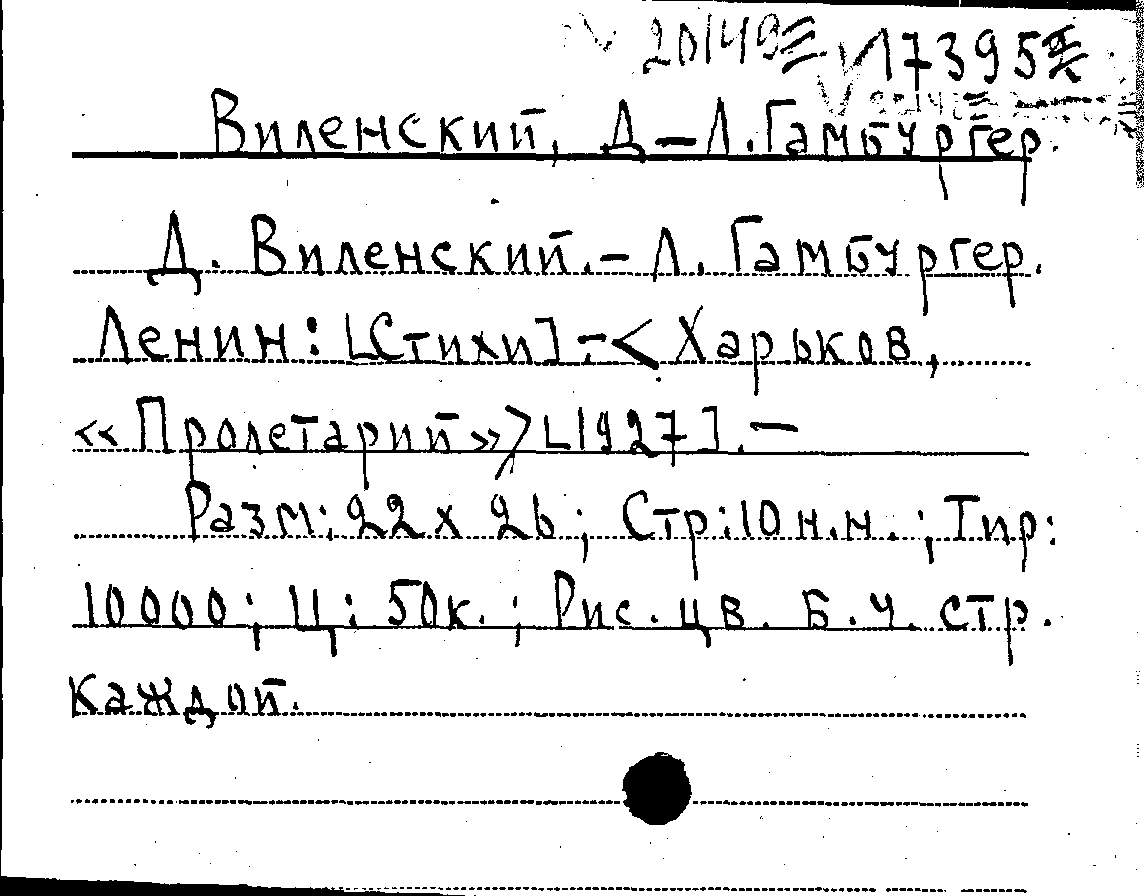 20149 17395
Виленский, Д – Л. Гамбургер.
Д. Виленский. – Л. Гамбургер.
Ленин: [Стихи] – < Харьков,
«Пролетарий» > [1927]. –
Разм: 22 х 26; Стр: 10 н.н.; Тир:
10000; Ц: 50к.; Рис. цв. Б.Ч. стр.
каждой.